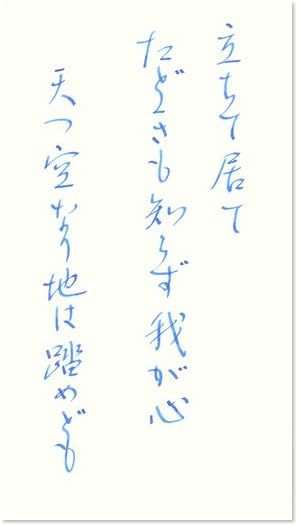 立ちて居て
たどきも知らず我が心
天つ空なり地は踏めども